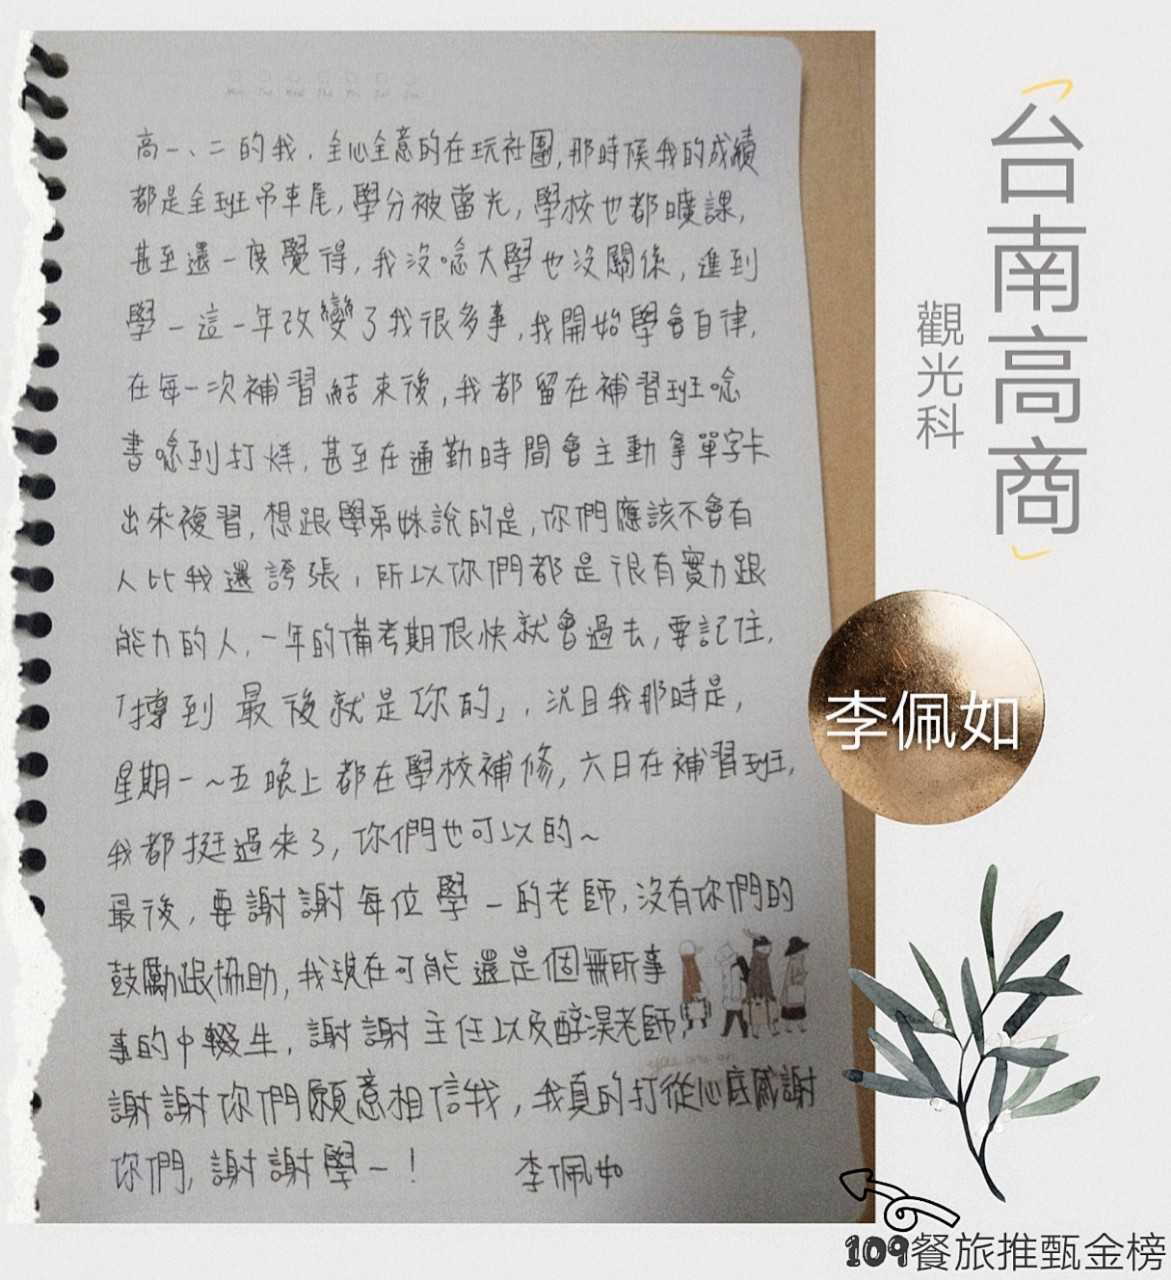 高一、二的我，全心全意的在玩社團，那時候我的成績
都是全班吊車尾，學分被當光，學校也都曠課，
甚至還一度覺得，我沒唸大學也沒關係，進到
學一這一年改變了我很多事，我開始學會自律，
在每一次補習結束後，我都留在補習班唸
書唸到打烊，甚至在通勤時間會主動拿單字卡
出來複習，想跟學弟妹說的是，你們應該不會有
人比我還誇張，所以你們都是很有實力跟
能力的人，一年的備考期很快就會過去，要記住，
「撐到最後就是你的」，況且我那時是，
星期一~五晚上都在學校補修，六日在補習班，
我都挺過來了，你們也可以的~
最後，要謝謝每位學一的老師，沒有你們的
鼓勵跟協助，我現在可能還是個無所事
事的中輟生，謝謝主任以及醇淏老師，
謝謝你們願意相信我，我真的打從心底感謝
你們，謝謝學一！ 李佩如
「台南高商」
觀光科
李佩如
109餐旅推甄金榜